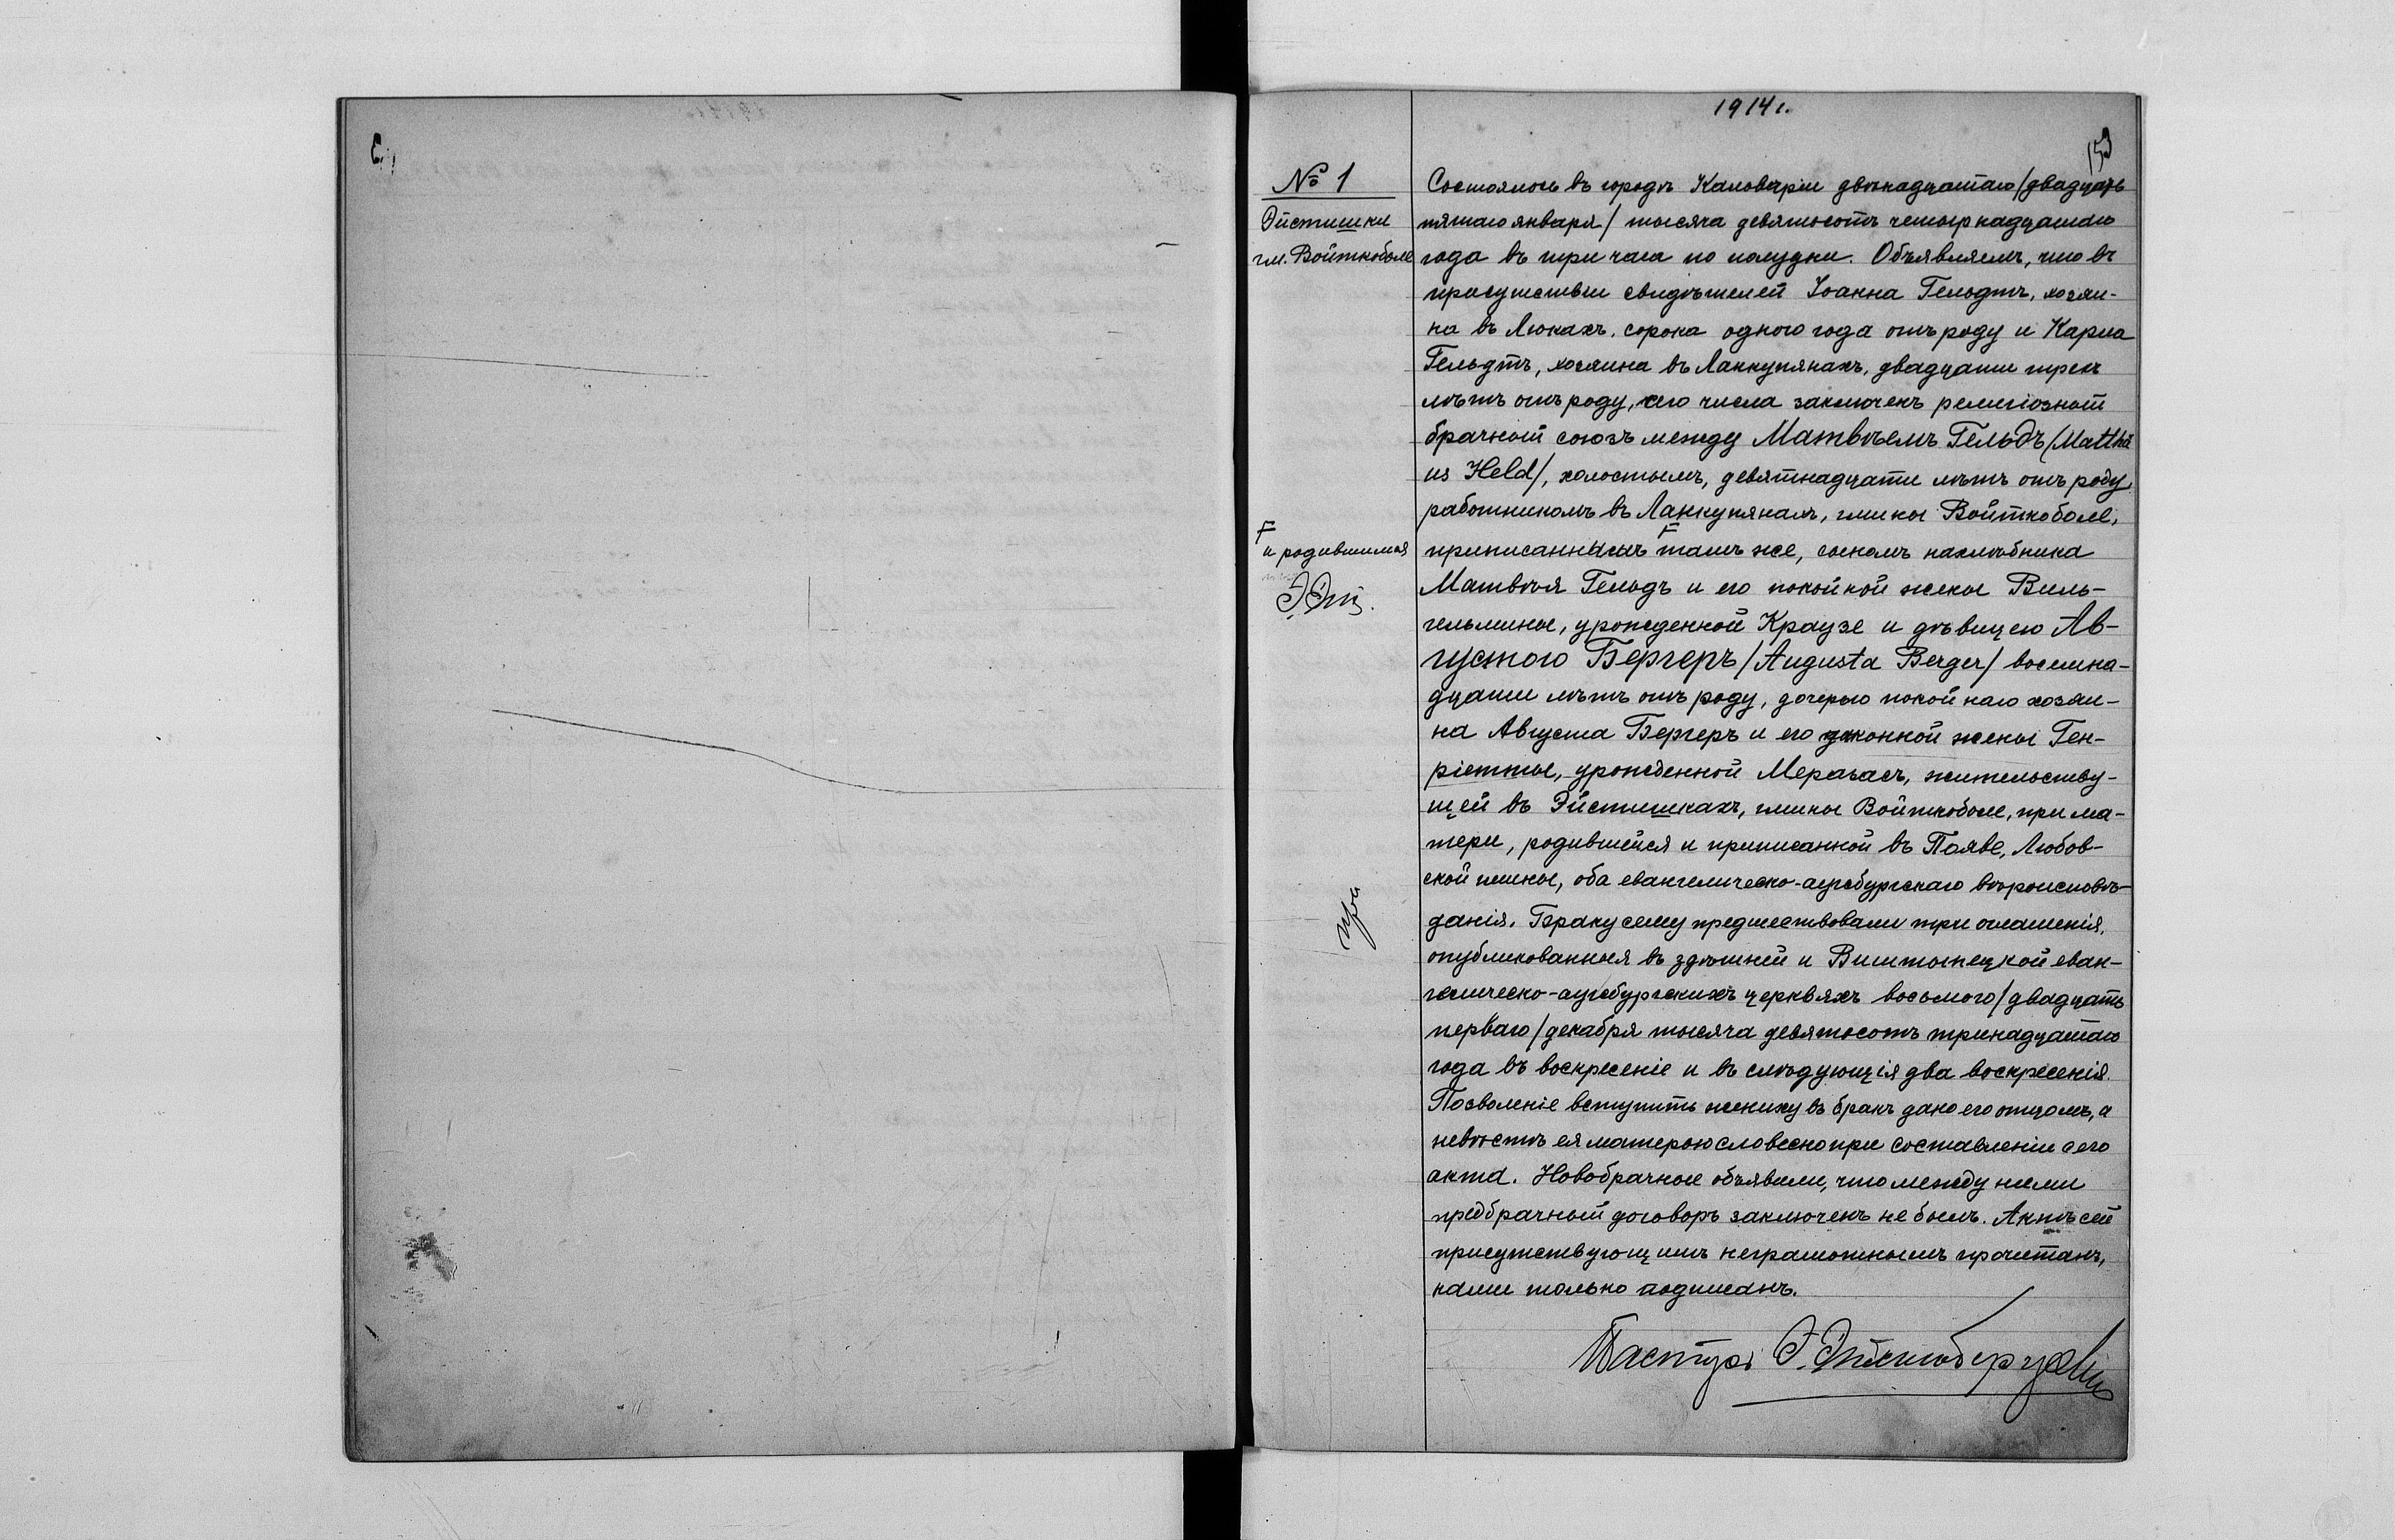 1914 г.
153
№ 1
Эйстишки
гм. Войткоболе
Состоялось въ городѣ Кальваріи двѣнадцатаго/двадцать
пятаго января/ тысяча девятьсотъ четырнадцатаго
года въ три часа по полудни. Объявляемъ, что въ
присутствіи свидѣтелей Іоанна Гельдтъ, хозяи-
на въ Люкахъ, сорока одного года отъ роду и Карла
Гельдтъ, хозяина въ Ланкупянахъ, двадцати трехъ
лѣтъ отъ роду, сего числа заключенъ религіозный
брачный союзъ между Матвѣемъ Гельдъ (Matthä
us Held/, холостымъ, девятнадцати лѣтъ отъ роду,
работникомъ въ Ланкупянахъ, гмины Войткоболе,
приписаннымъ тамъ же, сыномъ нахлѣбника
Матвѣя Гельдъ и его покойной жены Виль-
гельмины, урожденной Краузе и дѣвицею Ав-
густою Бергеръ/Augusta Berger/ восемна-
дцати лѣтъ отъ роду, дочерью покойнаго хозяи-
на Августа Бергеръ и его законной жены Ген-
ріетты, урожденной жительству-
щей въ Эйстишкахъ, гмины Войткоболе, при ма-
тери, родившейся и приписанной въ Появѣ, Любов-
ской гмины, оба евангелическо-аугсбургскаго вѣроисповѣ-
данія. Браку сему предшествовали три оглашенія,
опубликованныя въ здѣшней и Виштынецкой еван-
гелическо-аугсбургскихъ церквяхъ восьмого/двадцать
перваго/декабря тысяча девятьсотъ тринадцатаго
года въ воскресеніе и въ слѣдующія два воскресенія.
Позволеніе вступить жениху въ бракъ дано его отцомъ, а
невѣстѣ ея матерью словесно при составленіи сего
акта. Новобрачные объявили, что между ними
предбрачный договоръ заключенъ не былъ. Актъ сей
присутствующимъ неграмотнымъ прочитанъ,
нами только подписанъ.
и родившимся
Пасторъ